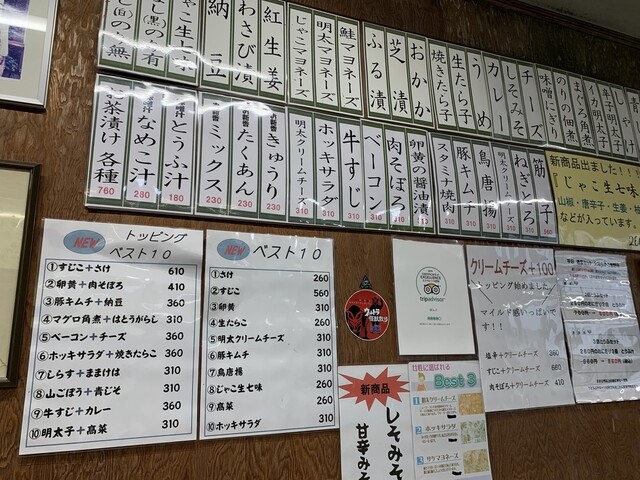 じゃこ生七味
納豆
わさび漬
紅生姜
じゃこマヨネーズ
明太マヨネーズ
鮭マヨネーズ
ふる漬
芝漬
おかか
焼きたら子
生たら子
うめ
カレー
しそみそ
チーズ
味噌にぎり
のりの佃煮
まぐろ角煮
イカ明太子
お茶漬け各種 760
なめこ汁 280
とうふ汁 180
ミックス 230
たくあん 230
きゅうり 230
明太クリームチーズ 310
ホッキサラダ 310
牛すじ 310
ベーコン 310
肉そぼろ 310
卵黄の醤油漬
スタミナ焼肉
豚キムチ
鳥唐揚
ねぎとろ
筋子
新商品出ました!!!
『じゃこ生七味
山椒・唐辛子・生姜・
などが入っています。
NEW トッピング
ベスト10
①すじこ+さけ 610
②卵黄+肉そぼろ 410
③豚キムチ+納豆 360
④マグロ角煮+はとうがらし 310
⑤ベーコン+チーズ 360
⑥ホッキサラダ+焼きたらこ 360
⑦しらす+ままけは 310
⑧山ごぼう+青じそ 310
⑨牛すじ+カレー 360
⑩明太子+高菜 310
NEW ベスト10
①さけ 260
②すじこ 560
③卵黄 310
④生たらこ 260
⑤明太クリームチーズ 310
⑥豚キムチ 310
⑦鳥唐揚 310
⑧じゃこ生七味 260
⑨高菜 260
⑩ホッキサラダ 310
tripadvisor
クリームチーズ+100
トッピング始めました
マイルド感いっぱいで
す!!
塩辛+クリームチーズ 360
すじこ+クリームチーズ 660
肉そぼろ+クリームチーズ 410
新商品
しそみそ
甘辛みそ
Best 3
1 明太クリームチーズ
2 ホッキサラダ
3 サケマヨネーズ